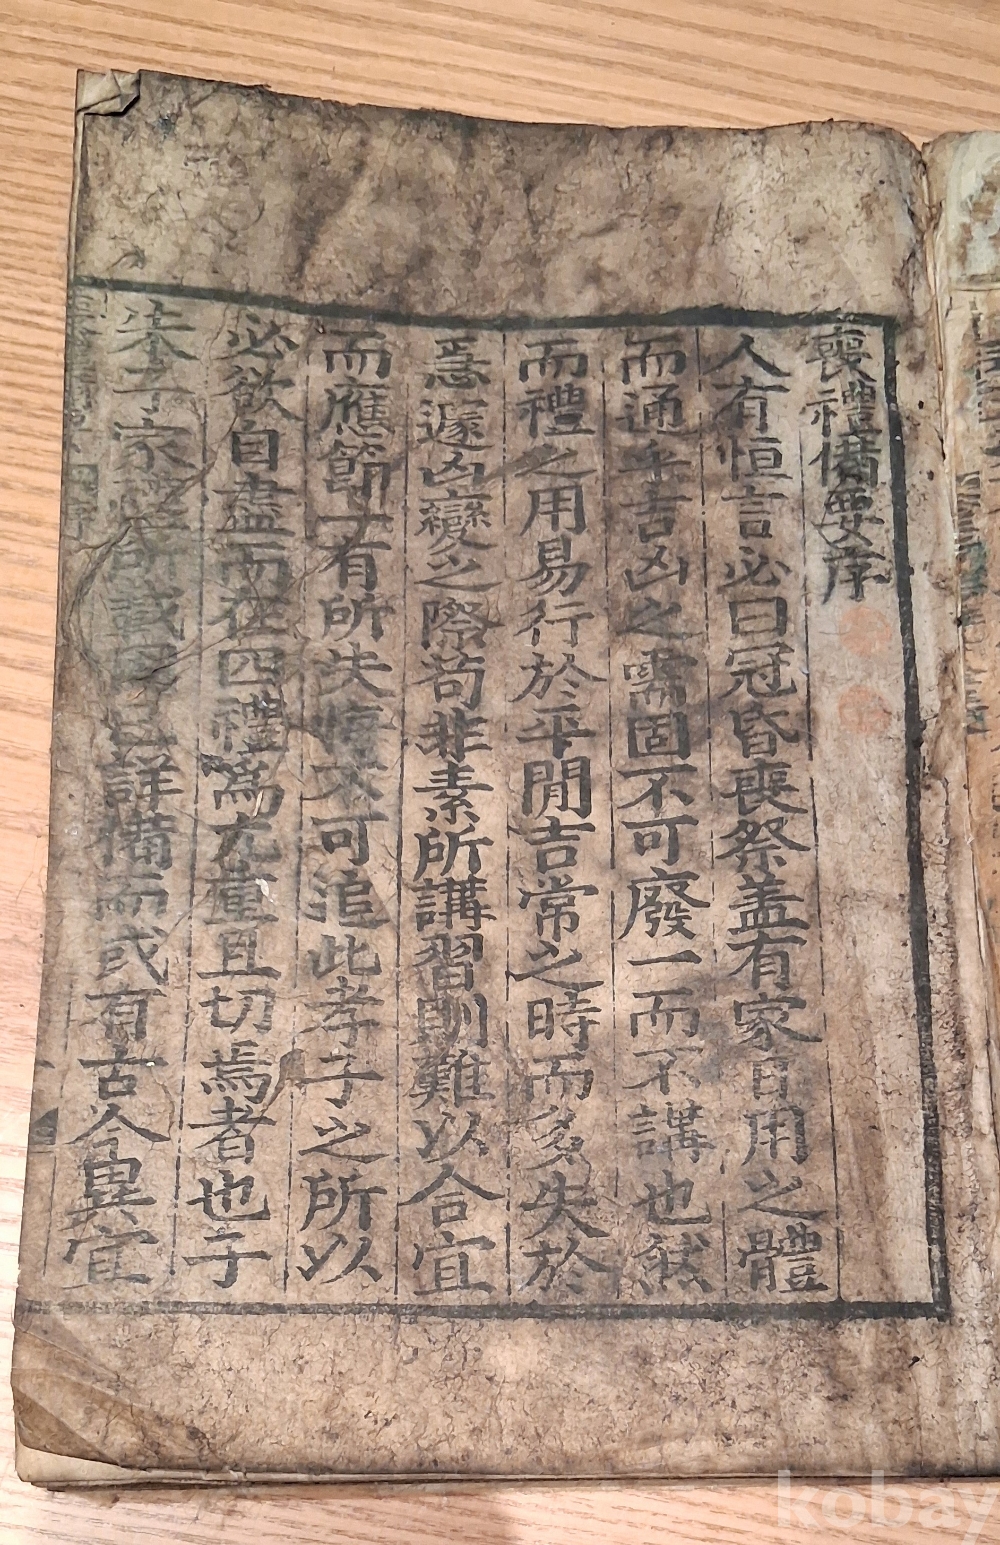 喪禮備要序
人有恒言必曰冠昏喪祭盖有家日用之體
而通乎吉凶之需固不可廢一而不講也然
而禮之用易行於平閒吉常之時而多失於
急遽凶變之際苟非素所講習則難以合宜
而應節才有所失悔不可追此孝子之所以
必欲自盡而在四禮爲尤重且切焉者也子
朱子家禮書載固已詳備而或有古今異宜
kobay